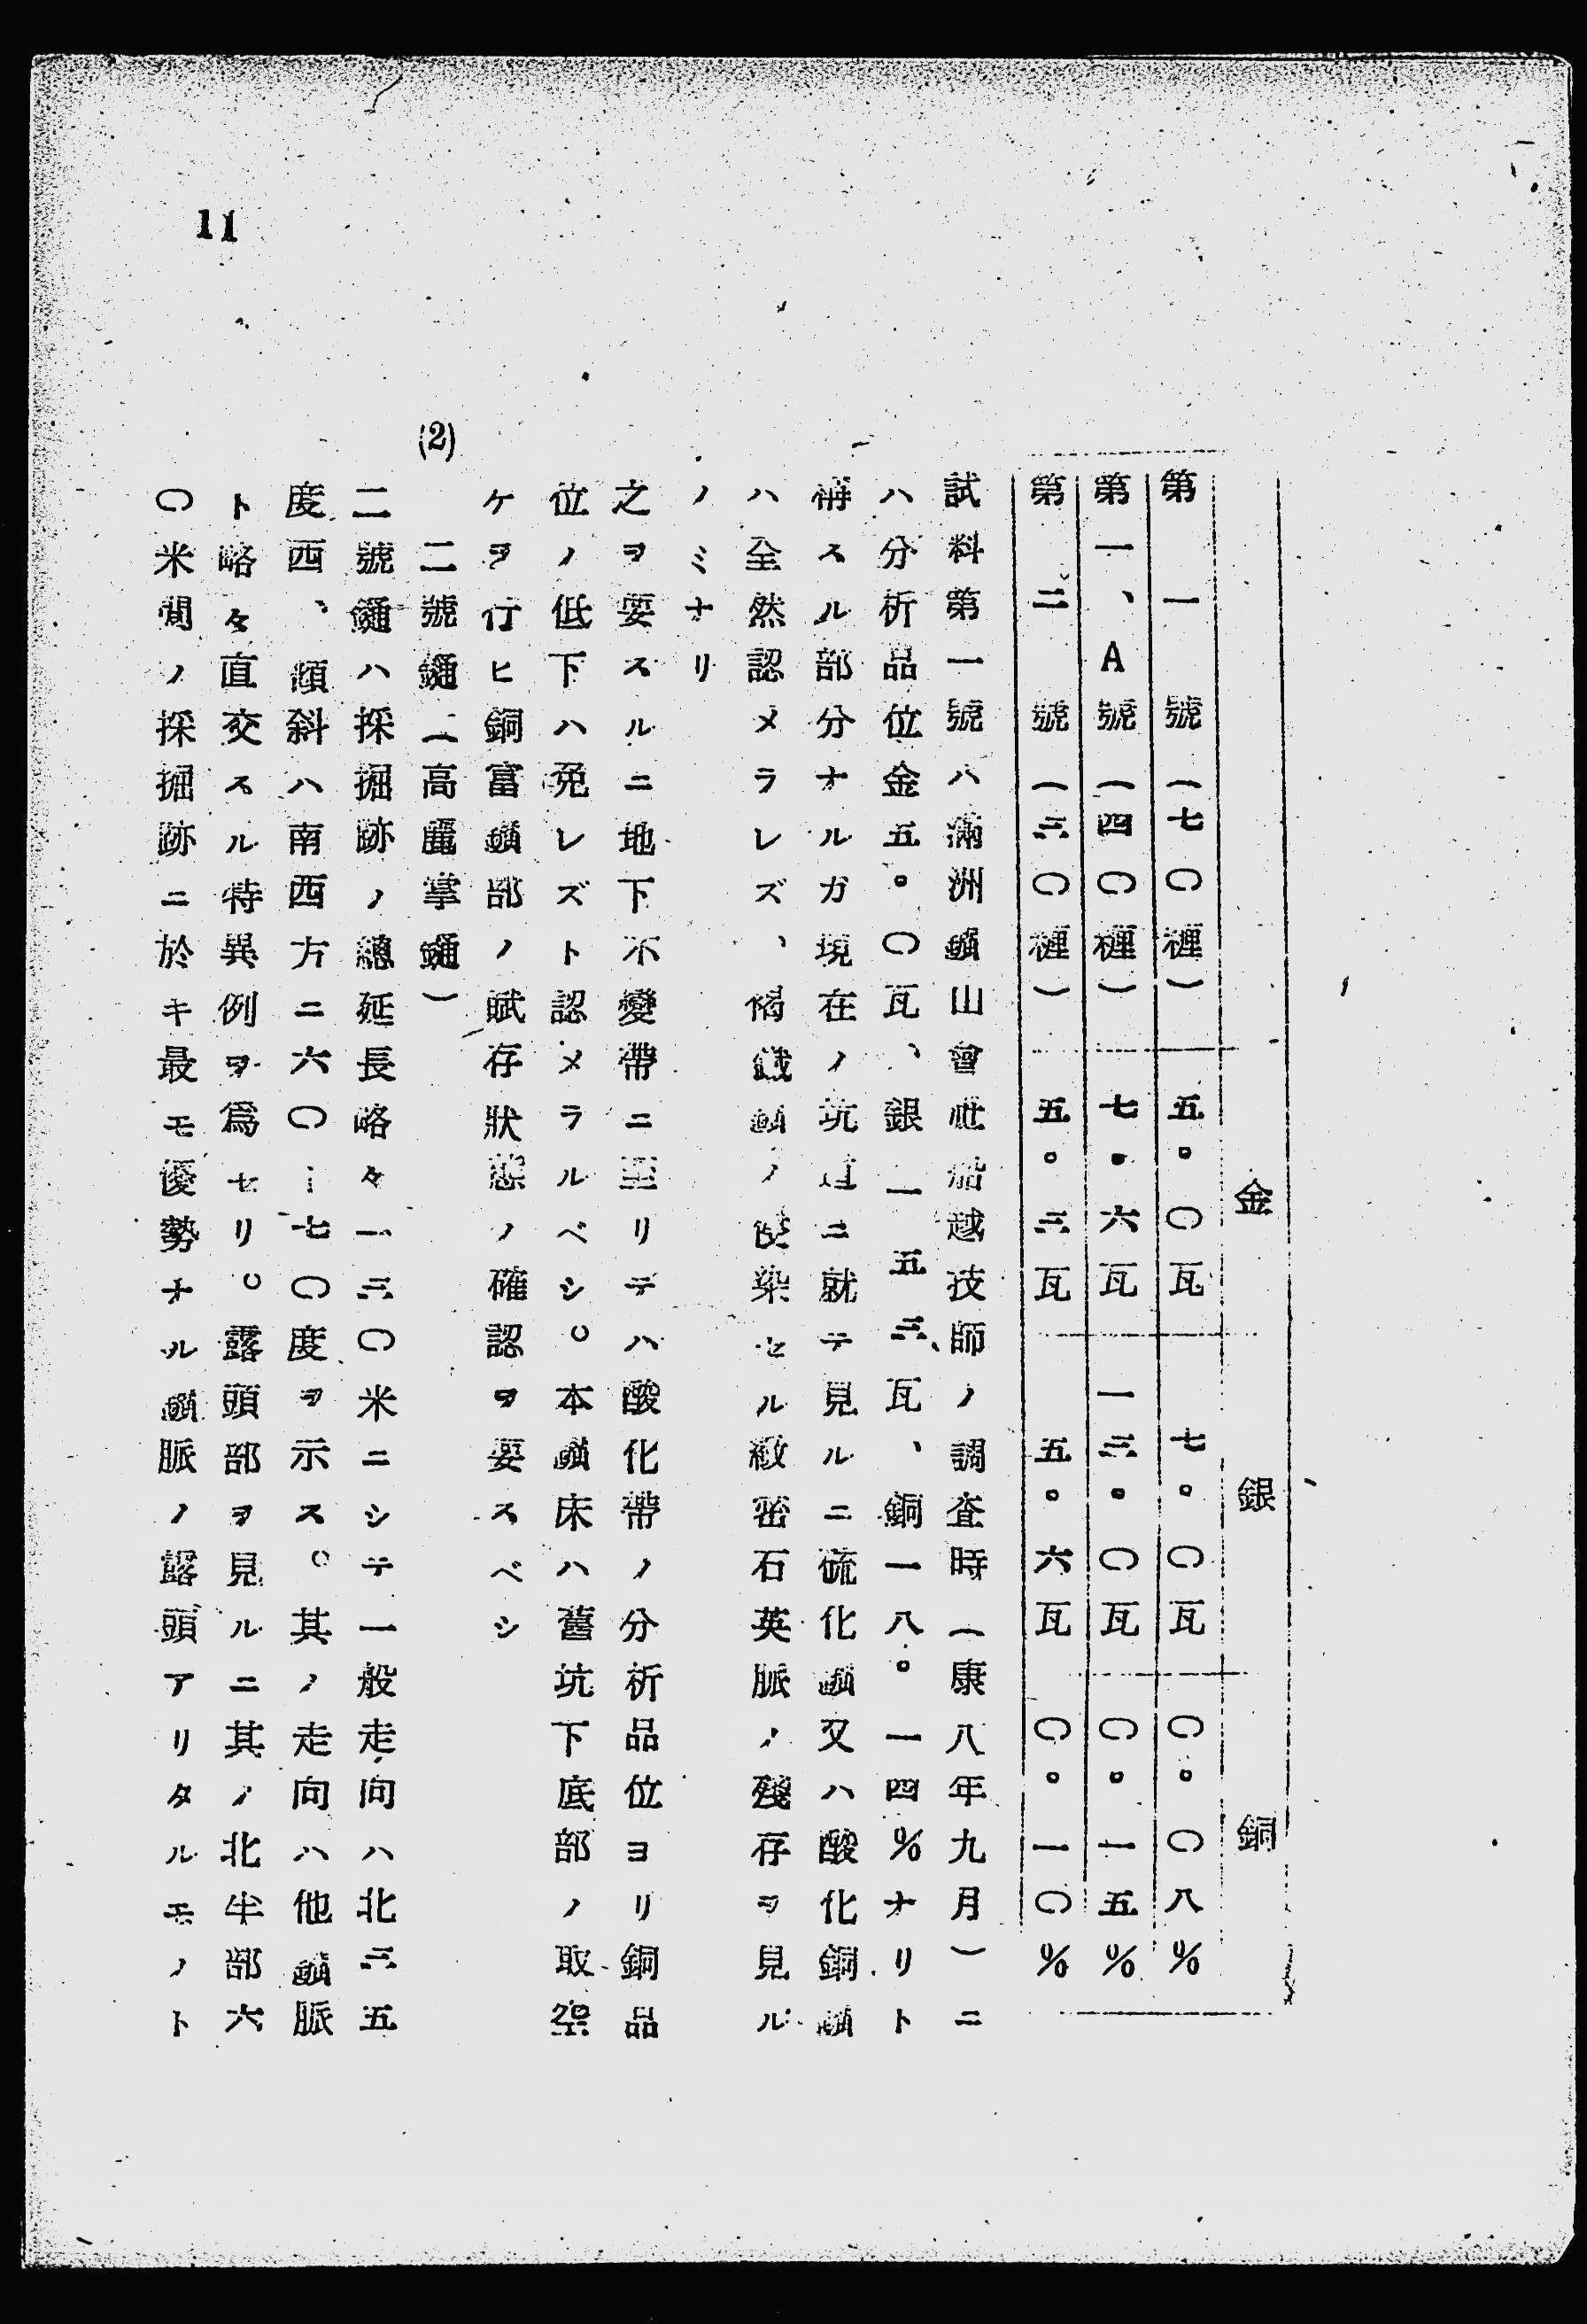 11
金 銀 銅
第一號(七〇糎) 五。〇瓦 七。〇瓦 〇。〇八%
第一、A號(四〇糎) 七。六瓦 一三。〇瓦 〇。一五%
第二號(三〇糎) 五。三瓦 五。六瓦 〇。一〇%
試料第一號ハ滿洲鑛山會社船越技師ノ調査時(康八年九月)ニ
ハ分析品位金五。〇瓦、銀一五三、瓦、銅一八。一四%ナリト
稱スル部分ナルガ現在ノ坑道ニ就テ見ルニ硫化鑛又ハ酸化銅鑛
ハ全然認メラレズ、褐鐵鑛ノ浸染セル緻密石英脈ノ殘存ヲ見ル
ノミナリ
之ヲ要スルニ地下不變帶ニ至リテハ酸化帶ノ分析品位ヨリ銅品
位ノ低下ハ免レズト認メラルベシ。本鑛床ハ舊坑下底部ノ取空
ケヲ行ヒ銅富鑛部ノ賦存狀態ノ確認ヲ要スベシ
(2) 二號𨫤(高麗掌𨫤)
二號𨫤ハ採掘跡ノ總延長略々一三〇米ニシテ一般走向ハ北三五
度西、傾斜ハ南西方ニ六〇〜七〇度ヲ示ス。其ノ走向ハ他鑛脈
ト略々直交スル特異例ヲ爲セリ。露頭部ヲ見ルニ其ノ北半部六
〇米間ノ採掘跡ニ於キ最モ優勢ナル鑛脈ノ露頭アリタルモノト